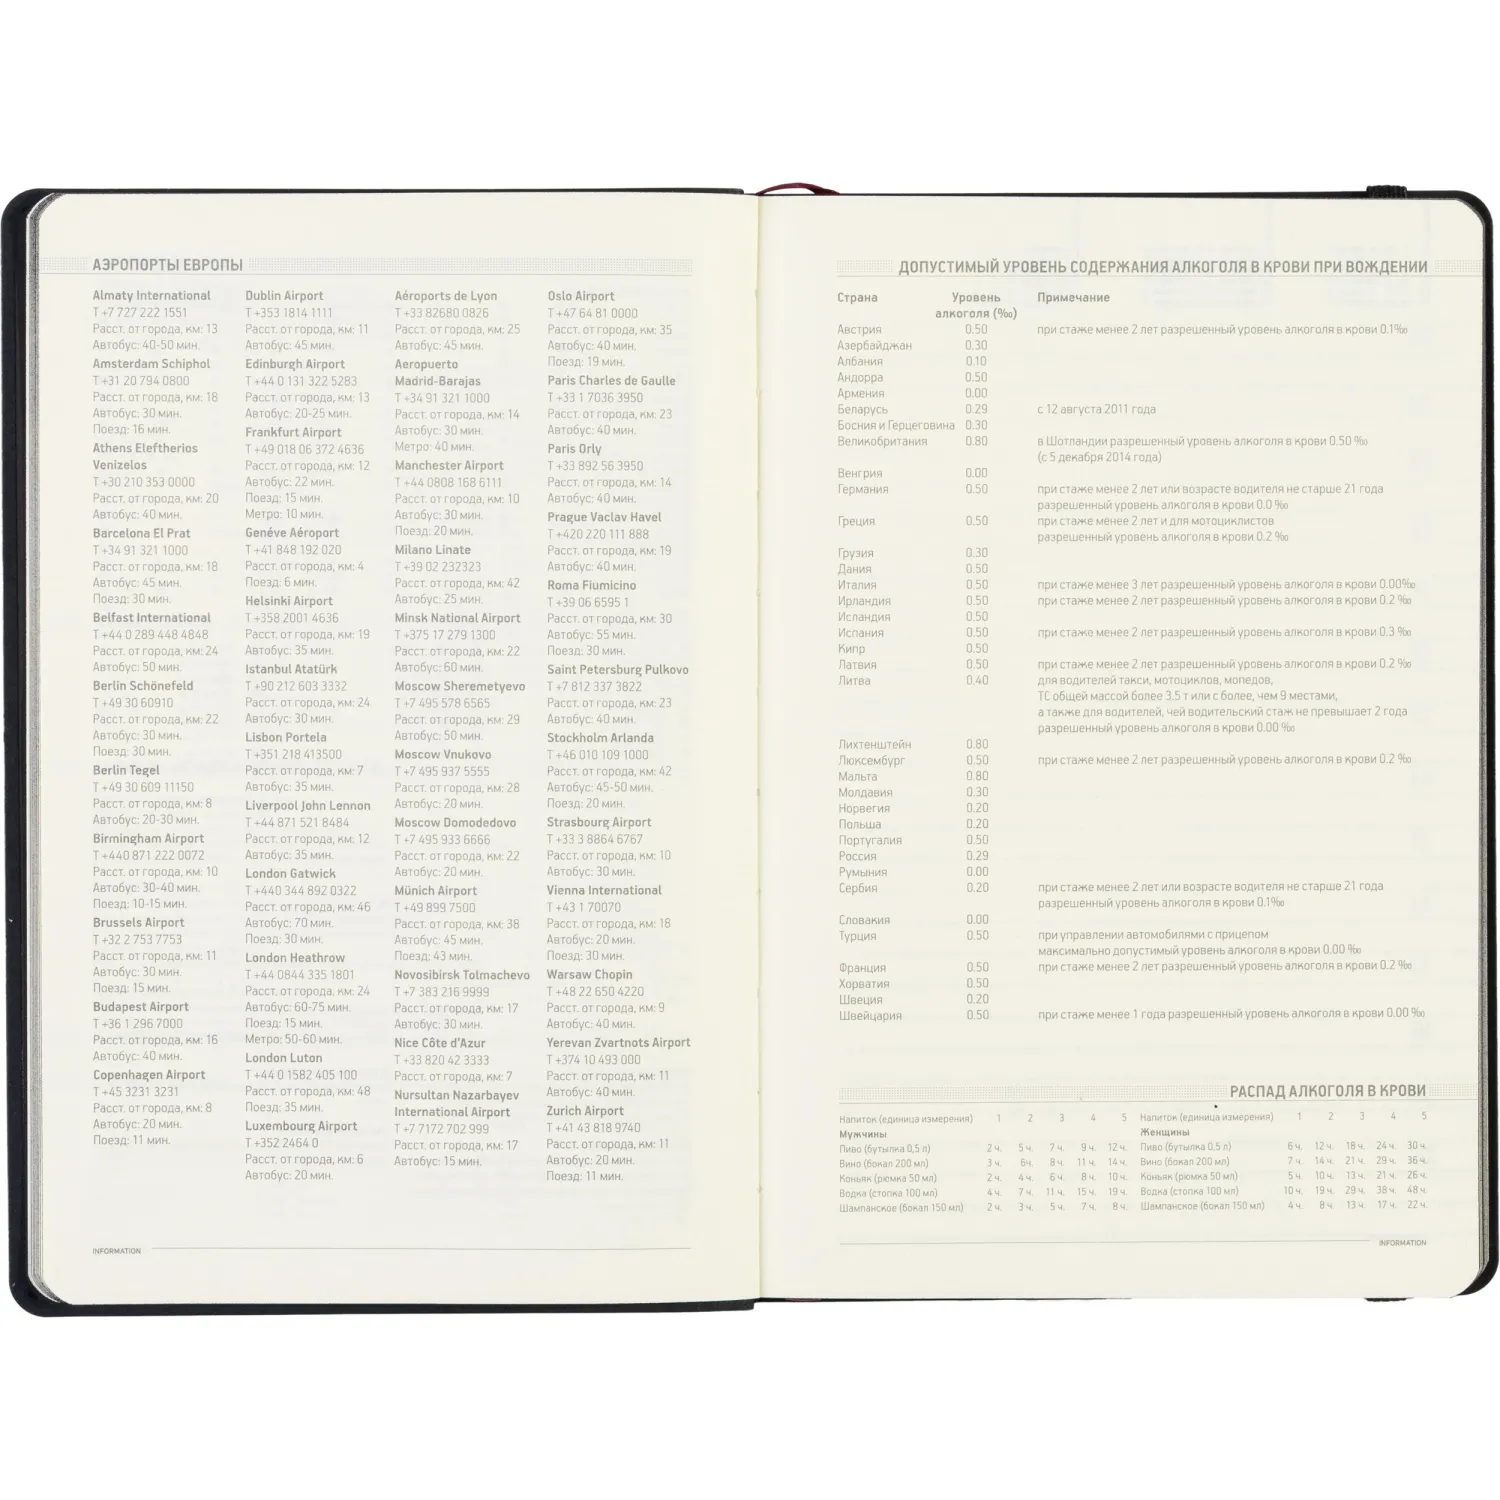 АЭРОПОРТЫ ЕВРОПЫ
Almaty International
T +7 727 222 1551
Расст. от города, км: 13
Автобус: 40-50 мин.
Amsterdam Schiphol
T +31 20 794 0800
Расст. от города, км: 18
Автобус: 30 мин.
Поезд: 16 мин.
Athens Eleftherios
Venizelos
T +30 210 353 0000
Расст. от города, км: 20
Автобус: 40 мин.
Barcelona El Prat
T +34 91 321 1000
Расст. от города, км: 18
Автобус: 45 мин.
Поезд: 30 мин.
Belfast International
T +44 0 289 448 4848
Расст. от города, км: 24
Автобус: 50 мин.
Berlin Schönefeld
T +49 30 60910
Расст. от города, км: 22
Автобус: 30 мин.
Поезд: 30 мин.
Berlin Tegel
T +49 30 609 11150
Расст. от города, км: 8
Автобус: 20-30 мин.
Birmingham Airport
T +440 871 222 0072
Расст. от города, км: 10
Автобус: 30-40 мин.
Поезд: 10-15 мин.
Brussels Airport
T +32 2 753 7753
Расст. от города, км: 11
Автобус: 30 мин.
Поезд: 15 мин.
Budapest Airport
T +36 1 296 7000
Расст. от города, км: 16
Автобус: 40 мин.
Copenhagen Airport
T +45 3231 3231
Расст. от города, км: 8
Автобус: 20 мин.
Поезд: 11 мин.
Dublin Airport
T +353 1814 1111
Расст. от города, км: 11
Автобус: 45 мин.
Edinburgh Airport
T +44 0 131 322 5283
Расст. от города, км: 13
Автобус: 20-25 мин.
Frankfurt Airport
T +49 018 06 372 4636
Расст. от города, км: 12
Автобус: 22 мин.
Поезд: 15 мин.
Метро: 10 мин.
Genéve Aéroport
T +41 848 192 020
Расст. от города, км: 4
Поезд: 6 мин.
Helsinki Airport
T +358 2001 4636
Расст. от города, км: 19
Автобус: 35 мин.
Istanbul Atatürk
T +90 212 603 3332
Расст. от города, км: 24
Автобус: 30 мин.
Lisbon Portela
T +351 218 413500
Расст. от города, км: 7
Автобус: 35 мин.
Liverpool John Lennon
T +44 871 521 8484
Расст. от города, км: 12
Автобус: 35 мин.
London Gatwick
T +440 344 892 0322
Расст. от города, км: 46
Автобус: 70 мин.
Поезд: 30 мин.
London Heathrow
T +44 0844 335 1801
Расст. от города, км: 24
Автобус: 60-75 мин.
Поезд: 15 мин.
Метро: 50-60 мин.
London Luton
T +44 0 1582 405 100
Расст. от города, км: 48
Поезд: 35 мин.
Luxembourg Airport
T +352 2464 0
Расст. от города, км: 6
Автобус: 20 мин.
Aéroports de Lyon
T +33 82680 0826
Расст. от города, км: 25
Автобус: 45 мин.
Aeropuerto
Madrid-Barajas
T +34 91 321 1000
Расст. от города, км: 14
Автобус: 30 мин.
Метро: 40 мин.
Manchester Airport
T +44 0808 168 6111
Расст. от города, км: 10
Автобус: 30 мин.
Поезд: 20 мин.
Milano Linate
T +39 02 232323
Расст. от города, км: 42
Автобус: 25 мин.
Minsk National Airport
T +375 17 279 1300
Расст. от города, км: 22
Автобус: 60 мин.
Moscow Sheremetyevo
T +7 495 578 6565
Расст. от города, км: 29
Автобус: 50 мин.
Moscow Vnukovo
T +7 495 937 5555
Расст. от города, км: 28
Автобус: 20 мин.
Moscow Domodedovo
T +7 495 933 6666
Расст. от города, км: 22
Автобус: 20 мин.
Münich Airport
T +49 899 7500
Расст. от города, км: 38
Автобус: 45 мин.
Поезд: 43 мин.
Novosibirsk Tolmachevo
T +7 383 216 9999
Расст. от города, км: 17
Автобус: 30 мин.
Nice Côte d'Azur
T +33 820 42 3333
Расст. от города, км: 7
Nursultan Nazarbayev
International Airport
T +7 7172 702 999
Расст. от города, км: 17
Автобус: 15 мин.
Oslo Airport
T +47 64 81 0000
Расст. от города, км: 35
Автобус: 40 мин.
Поезд: 19 мин.
Paris Charles de Gaulle
T +33 1 7036 3950
Расст. от города, км: 23
Автобус: 40 мин.
Paris Orly
T +33 892 56 3950
Расст. от города, км: 14
Автобус: 40 мин.
Prague Vaclav Havel
T +420 220 111 888
Расст. от города, км: 19
Автобус: 40 мин.
Roma Fiumicino
T +39 06 6595 1
Расст. от города, км: 30
Автобус: 55 мин.
Поезд: 30 мин.
Saint Petersburg Pulkovo
T +7 812 337 3822
Расст. от города, км: 23
Автобус: 40 мин.
Stockholm Arlanda
T +46 010 109 1000
Расст. от города, км: 42
Автобус: 45-50 мин.
Поезд: 20 мин.
Strasbourg Airport
T +33 3 8864 6767
Расст. от города, км: 10
Автобус: 30 мин.
Vienna International
T +43 1 70070
Расст. от города, км: 18
Автобус: 20 мин.
Поезд: 30 мин.
Warsaw Chopin
T +48 22 650 4220
Расст. от города, км: 9
Автобус: 40 мин.
Yerevan Zvartnots Airport
T +374 10 493 000
Расст. от города, км: 11
Автобус: 40 мин.
Zurich Airport
T +41 43 818 9740
Расст. от города, км: 11
Автобус: 20 мин.
Поезд: 11 мин.
INFORMATION
ДОПУСТИМЫЙ УРОВЕНЬ СОДЕРЖАНИЯ АЛКОГОЛЯ В КРОВИ ПРИ ВОЖДЕНИИ
Страна Уровень Примечание
алкоголя (‰)
Австрия 0.50 при стаже менее 2 лет разрешенный уровень алкоголя в крови 0.1‰
Азербайджан 0.30
Албания 0.10
Андорра 0.50
Армения 0.00
Беларусь 0.29 с 12 августа 2011 года
Босния и Герцеговина 0.30
Великобритания 0.80 в Шотландии разрешенный уровень алкоголя в крови 0.50 ‰
(с 5 декабря 2014 года)
Венгрия 0.00
Германия 0.50 при стаже менее 2 лет или возрасте водителя не старше 21 года
разрешенный уровень алкоголя в крови 0.0 ‰
Греция 0.50 при стаже менее 2 лет и для мотоциклистов
разрешенный уровень алкоголя в крови 0.2 ‰
Грузия 0.30
Дания 0.50
Италия 0.50 при стаже менее 3 лет разрешенный уровень алкоголя в крови 0.00‰
Ирландия 0.50 при стаже менее 2 лет разрешенный уровень алкоголя в крови 0.2 ‰
Исландия 0.50
Испания 0.50 при стаже менее 2 лет разрешенный уровень алкоголя в крови 0.3 ‰
Кипр 0.50
Латвия 0.50 при стаже менее 2 лет разрешенный уровень алкоголя в крови 0.2 ‰
Литва 0.40 для водителей такси, мотоциклов, мопедов,
ТС общей массой более 3.5 т или с более, чем 9 местами,
а также для водителей, чей водительский стаж не превышает 2 года
разрешенный уровень алкоголя в крови 0.00 ‰
Лихтенштейн 0.80
Люксембург 0.50 при стаже менее 2 лет разрешенный уровень алкоголя в крови 0.2 ‰
Мальта 0.80
Молдавия 0.30
Норвегия 0.20
Польша 0.20
Португалия 0.50
Россия 0.29
Румыния 0.00
Сербия 0.20 при стаже менее 2 лет или возрасте водителя не старше 21 года
разрешенный уровень алкоголя в крови 0.1‰
Словакия 0.00
Турция 0.50 при управлении автомобилями с прицепом
максимально допустимый уровень алкоголя в крови 0.00 ‰
Франция 0.50 при стаже менее 2 лет разрешенный уровень алкоголя в крови 0.2 ‰
Хорватия 0.50
Швеция 0.20
Швейцария 0.50 при стаже менее 1 года разрешенный уровень алкоголя в крови 0.00 ‰
РАСПАД АЛКОГОЛЯ В КРОВИ
Напиток (единица измерения) 1 2 3 4 5 Напиток (единица измерения) 1 2 3 4 5
Мужчины Женщины
Пиво (бутылка 0,5 л) 2 ч. 5 ч. 7 ч. 9 ч. 12 ч. Пиво (бутылка 0,5 л) 6 ч. 12 ч. 18 ч. 24 ч. 30 ч.
Вино (бокал 200 мл) 3 ч. 6ч. 8 ч. 11 ч. 14 ч. Вино (бокал 200 мл) 7 ч. 14 ч. 21 ч. 29 ч. 36 ч.
Коньяк (рюмка 50 мл) 2 ч. 4 ч. 6 ч. 8 ч. 10 ч. Коньяк (рюмка 50 мл) 5 ч. 10 ч. 13 ч. 21 ч. 26 ч.
Водка (стопка 100 мл) 4 ч. 7 ч. 11 ч. 15 ч. 19 ч. Водка (стопка 100 мл) 10 ч. 19 ч. 29 ч. 38 ч. 48 ч.
Шампанское (бокал 150 мл) 2 ч. 3 ч. 5 ч. 7 ч. 8 ч. Шампанское (бокал 150 мл) 4 ч. 8 ч. 13 ч. 17 ч. 22 ч.
INFORMATION